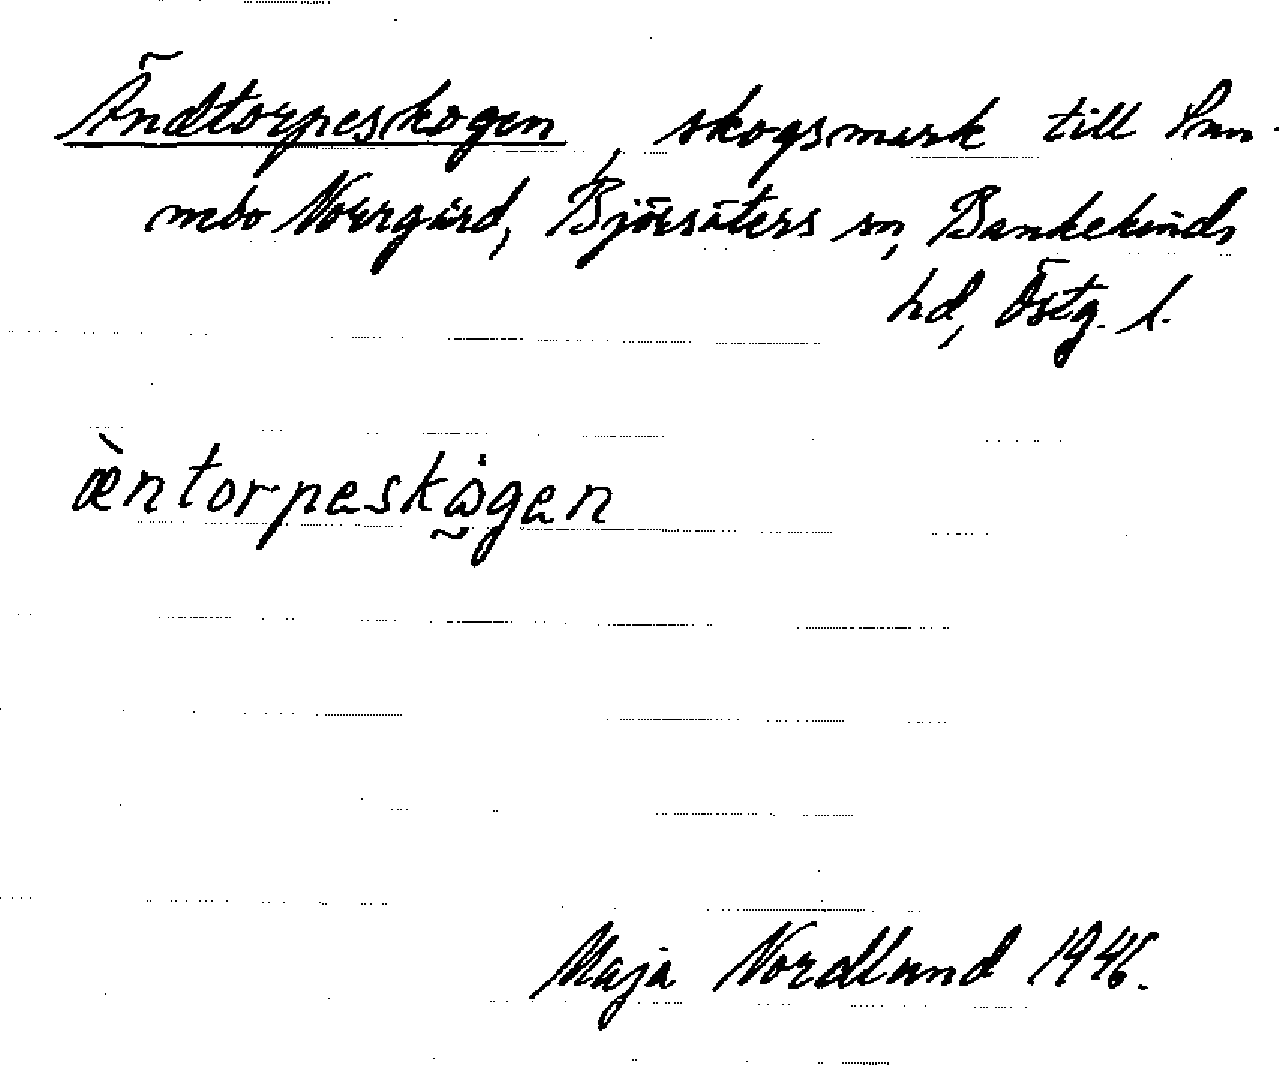 Ändtorpeskogen, skogsmark till
Norrgård, Björsäters sn, Bankekinds
hd, Östg. l.
æ̀ntorpeskȯ̰gen
Maja Nordlund 1946.